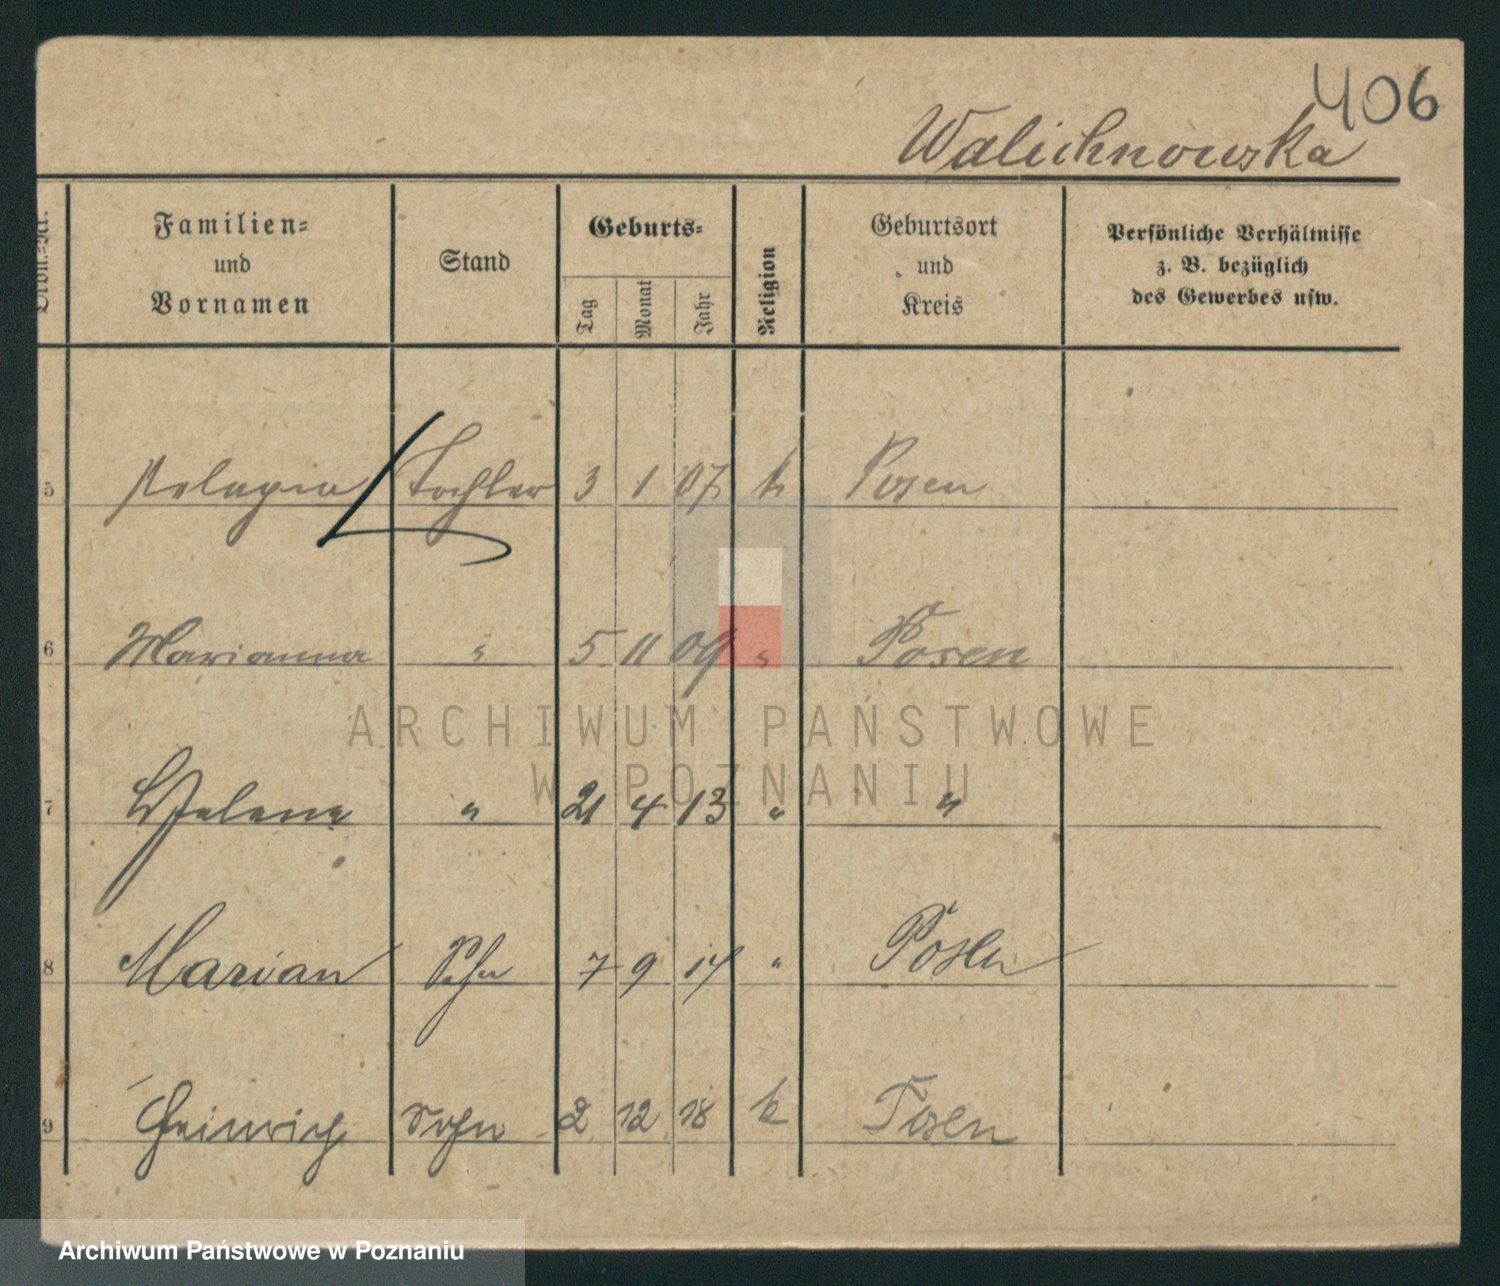 406
Walichnowska
Ordn.-Nr.
Familien-
und
Vornamen
Stand
Geburts-
Tag
Monat
Jahr
Religion
Geburtsort
und
Kreis
Persönliche Verhältnisse
z. B. bezüglich
des Gewerbes usw.
5 Pelagia Tochter 3 1 07 k Posen
6 Marianna " 5 11 09 " Posen
ARCHIWUM PAŃSTWOWE
W POZNANIU
7 Helene " 21 4 13 " "
8 Marian Sohn 7 9 14 " Posen
9 Heinrich Sohn 2 12 18 k Posen
Archiwum Państwowe w Poznaniu